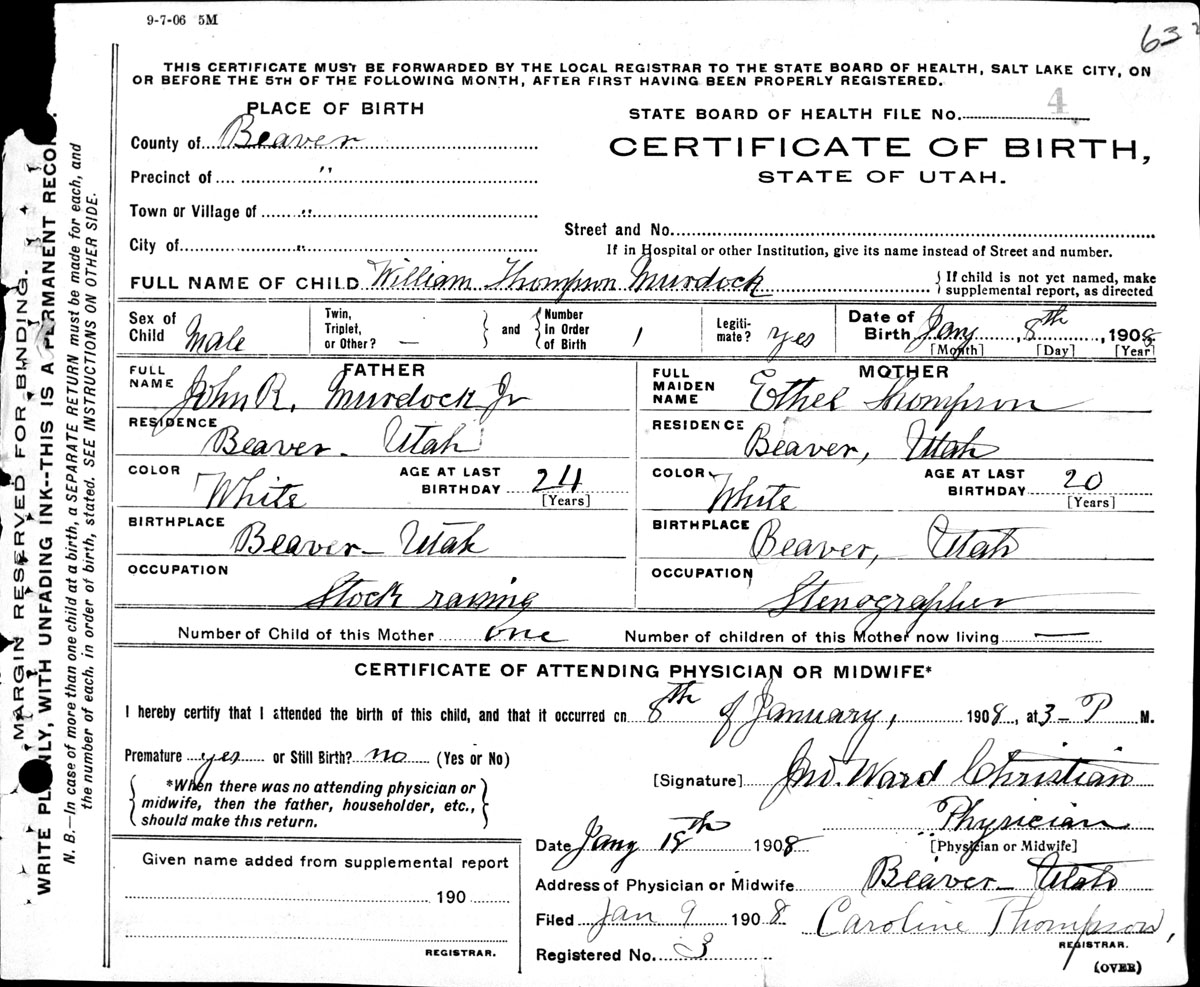 9-7-06 5M
63
THIS CERTIFICATE MUST BE FORWARDED BY THE LOCAL REGISTRAR TO THE STATE BOARD OF HEALTH, SALT LAKE CITY, ON
OR BEFORE THE 5TH OF THE FOLLOWING MONTH, AFTER FIRST HAVING BEEN PROPERLY REGISTERED.
PLACE OF BIRTH
County of Beaver
Precinct of "
Town or Village of "
City of "
STATE BOARD OF HEALTH FILE No. 4
CERTIFICATE OF BIRTH,
STATE OF UTAH.
Street and No.
If in Hospital or other Institution, give its name instead of Street and number.
FULL NAME OF CHILD William Thompson Murdock { If child is not yet named, make
supplemental report, as directed
Sex of Child Male
Twin, Triplet, or Other? – } and { Number in Order of Birth 1
Legitimate? yes
Date of Birth Jany 8th, 1908
[Month] [Day] [Year]
FATHER
FULL NAME John R. Murdock Jr
RESIDENCE Beaver - Utah
COLOR White AGE AT LAST BIRTHDAY 24 [Years]
BIRTHPLACE Beaver - Utah
OCCUPATION Stock raising
MOTHER
FULL MAIDEN NAME Ethel Thompson
RESIDENCE Beaver, Utah
COLOR White AGE AT LAST BIRTHDAY 20 [Years]
BIRTHPLACE Beaver, Utah
OCCUPATION Stenographer
Number of Child of this Mother one Number of children of this Mother now living —
CERTIFICATE OF ATTENDING PHYSICIAN OR MIDWIFE*
I hereby certify that I attended the birth of this child, and that it occurred on 8th of January, 1908, at 3 - P M.
Premature yes or Still Birth? no (Yes or No)
{ *When there was no attending physician or
midwife, then the father, householder, etc.,
should make this return. }
[Signature] Jno. Ward Christian
Physician
[Physician or Midwife]
Date Jany 18th 1908
Address of Physician or Midwife Beaver - Utah
Filed Jan 9 1908 Caroline Thompson,
REGISTRAR.
Registered No. 3
(OVER)
Given name added from supplemental report
190
REGISTRAR.
MARGIN RESERVED FOR BINDING.
WRITE PLAINLY, WITH UNFADING INK--THIS IS A PERMANENT RECORD.
N. B.—In case of more than one child at a birth, a SEPARATE RETURN must be made for each, and
the number of each, in order of birth, stated. SEE INSTRUCTIONS ON OTHER SIDE.